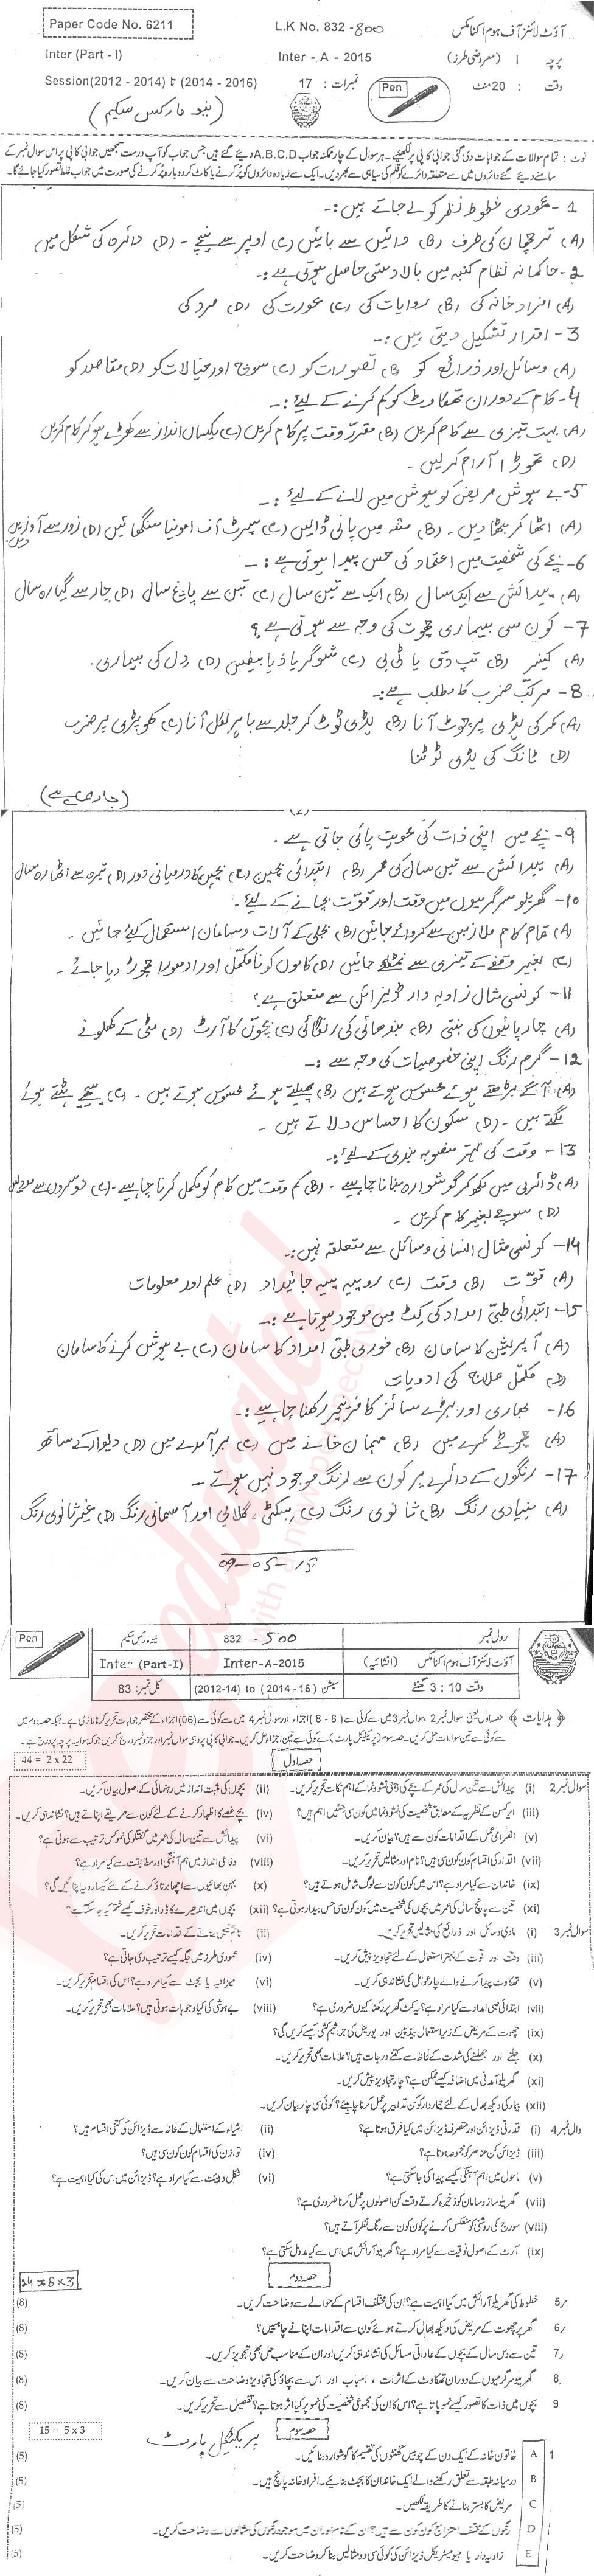 Paper Code No. 6211
L.K No. 832-800
آؤٹ لائنز آف ہوم اکنامکس
Inter (Part - I)
Inter - A - 2015
پرچہ I (معروضی طرز)
Session (2012 - 2014) تا (2014 - 2016)
نمبرات : 17
Pen
وقت : 20 منٹ
(نیو مارکس سکیم)
نوٹ : تمام سوالات کے جوابات دی گئی جوابی کاپی پر لکھئیے۔ ہر سوال کے چار ممکنہ جواب A.B.C.D دیئے گئے ہیں جس جواب کو آپ درست سمجھیں جوابی کاپی پر اس سوال نمبر کے
سامنے دیئے گئے دائروں میں سے متعلقہ دائرے کو قلم کی سیاہی سے بھر دیں۔ ایک سے زیادہ دائروں کو پُر کرنے یا کاٹ کر دوبارہ پُر کرنے کی صورت میں جواب غلط تصور کیا جائے گا۔
1 - عمودی خطوط نظر کو لے جاتے ہیں:-
(A) ترچھان کی طرف (B) دائیں سے بائیں (C) اوپر سے نیچے - (D) دائرہ کی شکل میں
2 - حاکمانہ نظام کنبہ میں بالادستی حاصل ہوتی ہے:-
(A) افراد خانہ کی (B) روایات کی (C) عورت کی (D) مرد کی
3 - اقدار تشکیل دیتی ہیں:-
(A) وسائل اور ذرائع کو (B) تصورات کو (C) سوچ اور خیالات کو (D) مقاصد کو
4 - کام کے دوران تھکاوٹ کو کم کرنے کے لیے:-
(A) بہت تیزی سے کام کریں (B) مقررہ وقت پر کام کریں (C) یکساں انداز سے کھڑے ہو کر کام کریں
(D) تھوڑا آرام کر لیں -
5 - بے ہوش مریض کو ہوش میں لانے کے لیے:-
(A) اٹھا کر بٹھا دیں - (B) منہ میں پانی ڈالیں (C) سپرٹ آف امونیا سنگھائیں (D) زور سے آوازیں دیں
6 - بچے کی شخصیت میں اعتماد کی حس پیدا ہوتی ہے:-
(A) پیدائش سے ایک سال (B) ایک سے تین سال (C) تین سے پانچ سال (D) چار سے گیارہ سال
7 - کون سی بیماری چھوت کی وجہ سے ہوتی ہے؟
(A) کینسر (B) تپ دق یا ٹی بی (C) شوگر یا ذیابیطس (D) دل کی بیماری.
8 - مرکب ضرب کا مطلب ہے:-
(A) کمر کی ہڈی پر چوٹ آنا (B) ہڈی ٹوٹ کر جلد سے باہر نکل آنا (C) کھوپڑی پر ضرب
(D) ٹانگ کی ہڈی ٹوٹنا
(جاری ہے)
(2)
9 - بچے میں اپنی ذات کی محویت پائی جاتی ہے -
(A) پیدائش سے تین سال کی عمر (B) ابتدائی بچپن (C) بچپن کا درمیانی دور (D) تیرہ سے اٹھارہ سال
10 - گھریلو سرگرمیوں میں وقت اور قوت بچانے کے لیے:-
(A) تمام کام ملازمین سے کروائے جائیں (B) بجلی کے آلات و سامان استعمال کیے جائیں -
(C) بغیر وقفے کے تیزی سے نمٹائے جائیں (D) کاموں کو نامکمل اور ادھورا چھوڑ دیا جائے -
11 - کونسی مثال زاویہ دار ڈیزائن سے متعلق ہے؟
(A) چارپائیوں کی بنتی (B) بندھائی کی رنگائی (C) بچوں کا آرٹ (D) مٹی کے کھلونے
12 - گرم رنگ اپنی خصوصیات کی وجہ سے:-
(A) آگے بڑھتے ہوئے محسوس ہوتے ہیں (B) پھیلتے ہوئے محسوس ہوتے ہیں - (C) پیچھے ہٹتے ہوئے
لگتے ہیں - (D) سکون کا احساس دلاتے ہیں -
13 - وقت کی بہتر منصوبہ بندی کے لیے:-
(A) ڈائری میں لکھ کر گوشوارہ بنانا چاہیے - (B) کم وقت میں کام کو مکمل کرنا چاہیے - (C) دوسروں سے مدد لیں
(D) سوچے بغیر کام کریں -
14 - کونسی مثال انسانی وسائل سے متعلقہ نہیں:-
(A) قوت (B) وقت (C) روپیہ پیسہ جائیداد (D) علم اور معلومات
15 - ابتدائی طبی امداد کی کٹ میں موجود ہوتا ہے:-
(A) آپریشن کا سامان (B) فوری طبی امداد کا سامان (C) بے ہوش کرنے کا سامان
(D) مکمل علاج کی ادویات
16 - بھاری اور بڑے سائز کا فرنیچر رکھنا چاہیے:-
(A) چھوٹے کمرے میں (B) مہمان خانے میں (C) برآمدے میں (D) دیوار کے ساتھ
17 - رنگوں کے دائرے پر کون سے رنگ موجود نہیں ہوتے -
(A) بنیادی رنگ (B) ثانوی رنگ (C) سکٹی، گلابی اور آسمانی رنگ (D) غیر ثانوی رنگ
09-05-15
Pen
نیو مارکس سکیم
832 - 500
رول نمبر
Inter (Part-I)
Inter-A-2015
آؤٹ لائنز آف ہوم اکنامکس (انشائیہ)
کل نمبر: 83
سیشن (2012-14) to (2014 - 16)
وقت 3 : 10 گھنٹے
﴿ہدایات﴾ حصہ اول یعنی سوال نمبر 2 سوال نمبر 3 میں سے کوئی سے (8 - 8) اجزاء اور سوال نمبر 4 میں سے کوئی سے (06) اجزاء کے مختصر جوابات تحریر کرنا لازمی ہے۔ جبکہ حصہ دوم میں
سے کوئی سے تین سوالات حل کریں۔ حصہ سوم (پریکٹیکل پارٹ) سے کوئی سے تین اجزا حل کریں۔ جوابی کاپی پر وہی سوال نمبر اور جز نمبر درج کریں جو کہ سوالیہ پرچہ پر درج ہے۔
حصہ اول
44 = 2 x 22
سوال نمبر 2 (i) پیدائش سے تین سال کی عمر کے بچے کی ذہنی نشوونما کے اہم نکات تحریر کریں۔ (ii) بچوں کی مثبت انداز میں رہنمائی کے اصول بیان کریں۔
(iii) ایرکسن کے نظریہ کے مطابق شخصیت کی نشوونما میں کون سی حسیں اہم ہیں؟ (iv) بچے غصے کا اظہار کرنے کے لئے کون سے طریقے اپناتے ہیں؟ نشاندہی کریں۔
(v) انصرامی عمل کے اقدامات کون سے ہیں؟ بیان کریں۔ (vi) پیدائش سے تین سال کی عمر میں گفتگو کی نشوونما کس ترتیب سے ہوتی ہے؟
(vii) اقدار کی اقسام کون کون سی ہیں؟ نام اور مثالیں تحریر کریں۔ (viii) دفاعی انداز میں ہم آہنگی اور مطابقت سے کیا مراد ہے؟
(ix) خاندان سے کیا مراد ہے؟ اس میں کون کون سے لوگ شامل ہوتے ہیں؟ (x) بہن بھائیوں سے اچھا برتاؤ کرنے کے لئے کیسا رویہ اپنائیں گی؟
(xi) تین سے پانچ سال کی عمر میں بچوں کی شخصیت میں کون کون سی حس بیدار ہوتی ہے؟ (xii) بچوں میں اندھیرے کا ڈر اور خوف کیسے ختم کیا جا سکتا ہے؟
سوال نمبر 3 (i) مادی وسائل اور ذرائع کی مثالیں تحریر کریں۔ (ii) ٹائم ٹیبل بنانے کے اقدامات تحریر کریں۔
(iii) وقت اور قوت کے بہتر استعمال کے لئے تجاویز پیش کریں۔ (iv) عمودی طرز میں جگہ کیسے ترتیب دی جاتی ہے؟
(v) تھکاوٹ پیدا کرنے والے چار عوامل کی نشاندہی کریں۔ (vi) میزانیہ یا بجٹ سے کیا مراد ہے؟ اس کی اقسام تحریر کریں۔
(vii) ابتدائی طبی امداد سے کیا مراد ہے؟ یہ کٹ گھر پر رکھنا کیوں ضروری ہے؟ (viii) بے ہوشی کی کیا وجوہات ہوتی ہیں؟ علامات بھی تحریر کریں۔
(ix) چھوت کے مریض کے زیر استعمال بیڈ پین اور یورینل کی جراثیم کشی کیسے کریں گی؟
(x) جلنے اور جھلسنے کی شدت کے لحاظ سے کتنے درجات ہیں؟ علامات بھی تحریر کریں۔
(xi) گھریلو آمدنی میں اضافہ کیسے ممکن ہے؟ چار تجاویز پیش کریں۔
(xii) بیمار کی دیکھ بھال کے لئے تیماردار کو کن تدابیر پر عمل کرنا چاہیئے؟ کوئی سی چار بیان کریں۔
وال نمبر 4 (i) قدرتی ڈیزائن اور متصرفہ ڈیزائن میں کیا فرق ہوتا ہے؟ (ii) اشیاء کے استعمال کے لحاظ سے ڈیزائن کی کتنی اقسام ہیں؟
(iii) ڈیزائن کن عناصر کا مجموعہ ہوتا ہے؟ (iv) توازن کی اقسام کون کون سی ہیں؟
(v) ماحول میں ہم آہنگی کیسے پیدا کی جا سکتی ہے؟ (vi) شکل و ہیئت سے کیا مراد ہے؟ ڈیزائن میں اس کی کیا اہمیت ہے؟
(vii) گھریلو ساز و سامان کو ذخیرہ کرتے وقت کن اصولوں پر عمل کرنا ضروری ہے؟
(viii) سورج کی روشنی کو منعکس کرنے پر کون کون سے رنگ نظر آتے ہیں؟
(ix) آرٹ کے اصول فوقیت سے کیا مراد ہے؟ گھریلو آرائش میں اس سے کیا مدد مل سکتی ہے؟
حصہ دوم
24 = 8 x 3
5 خطوط کی گھریلو آرائش میں کیا اہمیت ہے؟ ان کی مختلف اقسام کے حوالے سے وضاحت کریں۔ (8)
6 گھر پر چھوت کے مریض کی دیکھ بھال کرتے ہوئے کون سے اقدامات اپنانے چاہییں؟ (8)
7 تین سے دس سال کے بچوں کے عاداتی مسائل کی نشاندہی کریں اور ان کے مناسب حل بھی تجویز کریں۔ (8)
8 گھریلو سرگرمیوں کے دوران تھکاوٹ کے اثرات ، اسباب اور اس سے بچاؤ کی تجاویز وضاحت سے بیان کریں۔ (8)
9 بچوں میں ذات کا تصور کیسے نمو پاتا ہے؟ اس کا ان کی مجموعی شخصیت کی نمو پر کیا اثر ہوتا ہے؟ تفصیل سے تحریر کریں۔ (8)
حصہ سوم
پریکٹیکل پارٹ
15 = 5 x 3
1 A خاتون خانہ کے ایک دن کے چوبیس گھنٹوں کی تقسیم کا گوشوارہ بنائیں۔ (5)
B درمیانہ طبقہ سے تعلق رکھنے والے ایک خاندان کا بجٹ بنائیے۔ افراد خانہ پانچ ہیں۔ (5)
C مریض کا بستر بنانے کا طریقہ لکھیں۔ (5)
D رنگوں کے مختلف امتزاج کون کون سے ہیں؟ ان کے نام اور ان میں موجود رنگوں کی مثالوں سے وضاحت کریں۔ (5)
E زاویہ دار یا جیومیٹریکل ڈیزائن کی کوئی سی دو مثالیں بنا کر وضاحت کریں۔ (5)